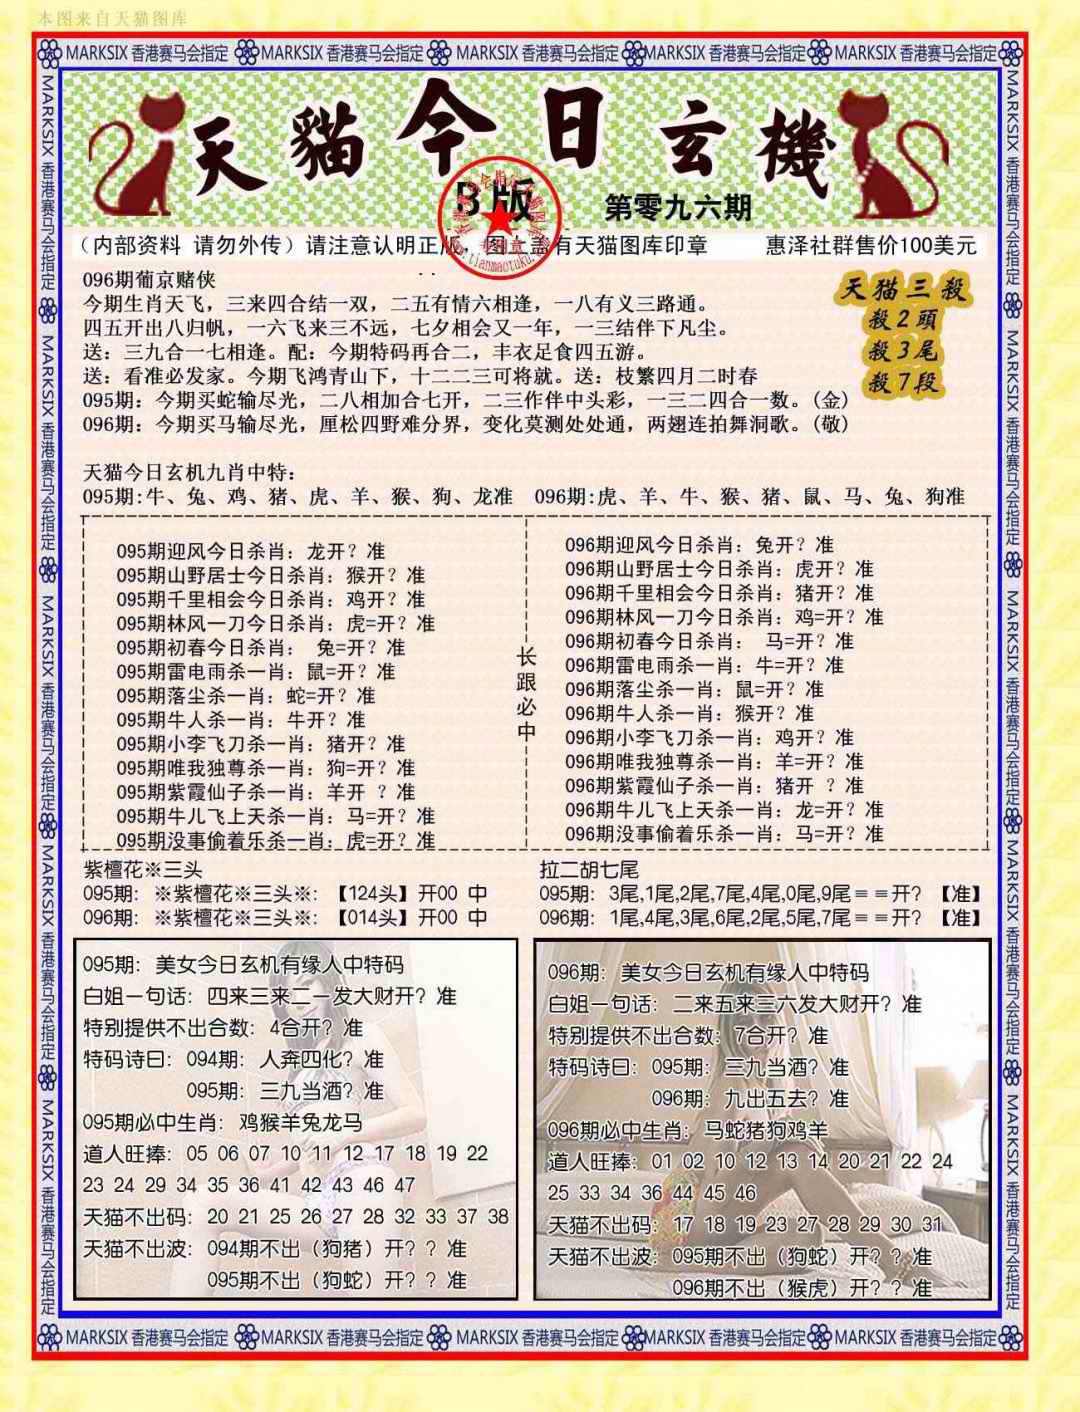 本图来自天猫图库
MARKSIX 香港赛马会指定 MARKSIX 香港赛马会指定 MARKSIX 香港赛马会指定 MARKSIX 香港赛马会指定 MARKSIX 香港赛马会指定
天貓今日玄機
B版
第零九六期
(内部资料 请勿外传)请注意认明正版,图上盖有天猫图库印章 惠泽社群售价100美元
096期葡京赌侠
今期生肖天飞,三来四合结一双,二五有情六相逢,一八有义三路通。
四五开出八归帆,一六飞来三不远,七夕相会又一年,一三结伴下凡尘。
送:三九合一七相逢。配:今期特码再合二,丰衣足食四五游。
送:看准必发家。今期飞鸿青山下,十二二三可将就。送:枝繁四月二时春
095期:今期买蛇输尽光,二八相加合七开,二三作伴中头彩,一三二四合一数。(金)
096期:今期买马输尽光,厘松四野难分界,变化莫测处处通,两翅连拍舞洞歌。(敬)
天猫三殺
殺2頭
殺3尾
殺7段
天猫今日玄机九肖中特:
095期:牛、兔、鸡、猪、虎、羊、猴、狗、龙准 096期:虎、羊、牛、猴、猪、鼠、马、兔、狗准
095期迎风今日杀肖:龙开?准
095期山野居士今日杀肖:猴开?准
095期千里相会今日杀肖:鸡开?准
095期林风一刀今日杀肖:虎=开?准
095期初春今日杀肖: 兔=开?准
095期雷电雨杀一肖:鼠=开?准
095期落尘杀一肖:蛇=开?准
095期牛人杀一肖:牛开?准
095期小李飞刀杀一肖:猪开?准
095期唯我独尊杀一肖:狗=开?准
095期紫霞仙子杀一肖:羊开 ?准
095期牛儿飞上天杀一肖:马=开?准
095期没事偷着乐杀一肖:虎=开?准
长跟必中
096期迎风今日杀肖:兔开?准
096期山野居士今日杀肖:虎开?准
096期千里相会今日杀肖:猪开?准
096期林风一刀今日杀肖:鸡=开?准
096期初春今日杀肖: 马=开?准
096期雷电雨杀一肖:牛=开?准
096期落尘杀一肖:鼠=开?准
096期牛人杀一肖:猴开?准
096期小李飞刀杀一肖:鸡开?准
096期唯我独尊杀一肖:羊=开?准
096期紫霞仙子杀一肖:猪开 ?准
096期牛儿飞上天杀一肖:龙=开?准
096期没事偷着乐杀一肖:马=开?准
紫檀花※三头
095期: ※紫檀花※三头※:【124头】开00 中
096期: ※紫檀花※三头※:【014头】开00 中
拉二胡七尾
095期: 3尾,1尾,2尾,7尾,4尾,0尾,9尾==开?【准】
096期: 1尾,4尾,3尾,6尾,2尾,5尾,7尾==开?【准】
095期:美女今日玄机有缘人中特码
白姐一句话:四来三来二一发大财开?准
特别提供不出合数:4合开?准
特码诗曰:094期:人奔四化?准
095期:三九当酒?准
095期必中生肖:鸡猴羊兔龙马
道人旺捧:05 06 07 10 11 12 17 18 19 22
23 24 29 34 35 36 41 42 43 46 47
天猫不出码:20 21 25 26 27 28 32 33 37 38
天猫不出波:094期不出(狗猪)开??准
095期不出(狗蛇)开??准
096期:美女今日玄机有缘人中特码
白姐一句话:二来五来三六发大财开?准
特别提供不出合数:7合开?准
特码诗曰:095期:三九当酒?准
096期:九出五去?准
096期必中生肖:马蛇猪狗鸡羊
道人旺捧:01 02 10 12 13 14 20 21 22 24
25 33 34 36 44 45 46
天猫不出码:17 18 19 23 27 28 29 30 31
天猫不出波:095期不出(狗蛇)开??准
096期不出(猴虎)开??准
MARKSIX 香港赛马会指定 MARKSIX 香港赛马会指定 MARKSIX 香港赛马会指定 MARKSIX 香港赛马会指定 MARKSIX 香港赛马会指定
MARKSIX 香港赛马会指定 MARKSIX 香港赛马会指定 MARKSIX 香港赛马会指定 MARKSIX 香港赛马会指定 MARKSIX 香港赛马会指定
MARKSIX 香港赛马会指定 MARKSIX 香港赛马会指定 MARKSIX 香港赛马会指定 MARKSIX 香港赛马会指定 MARKSIX 香港赛马会指定